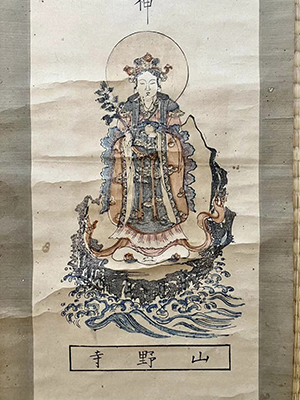 神
山野寺